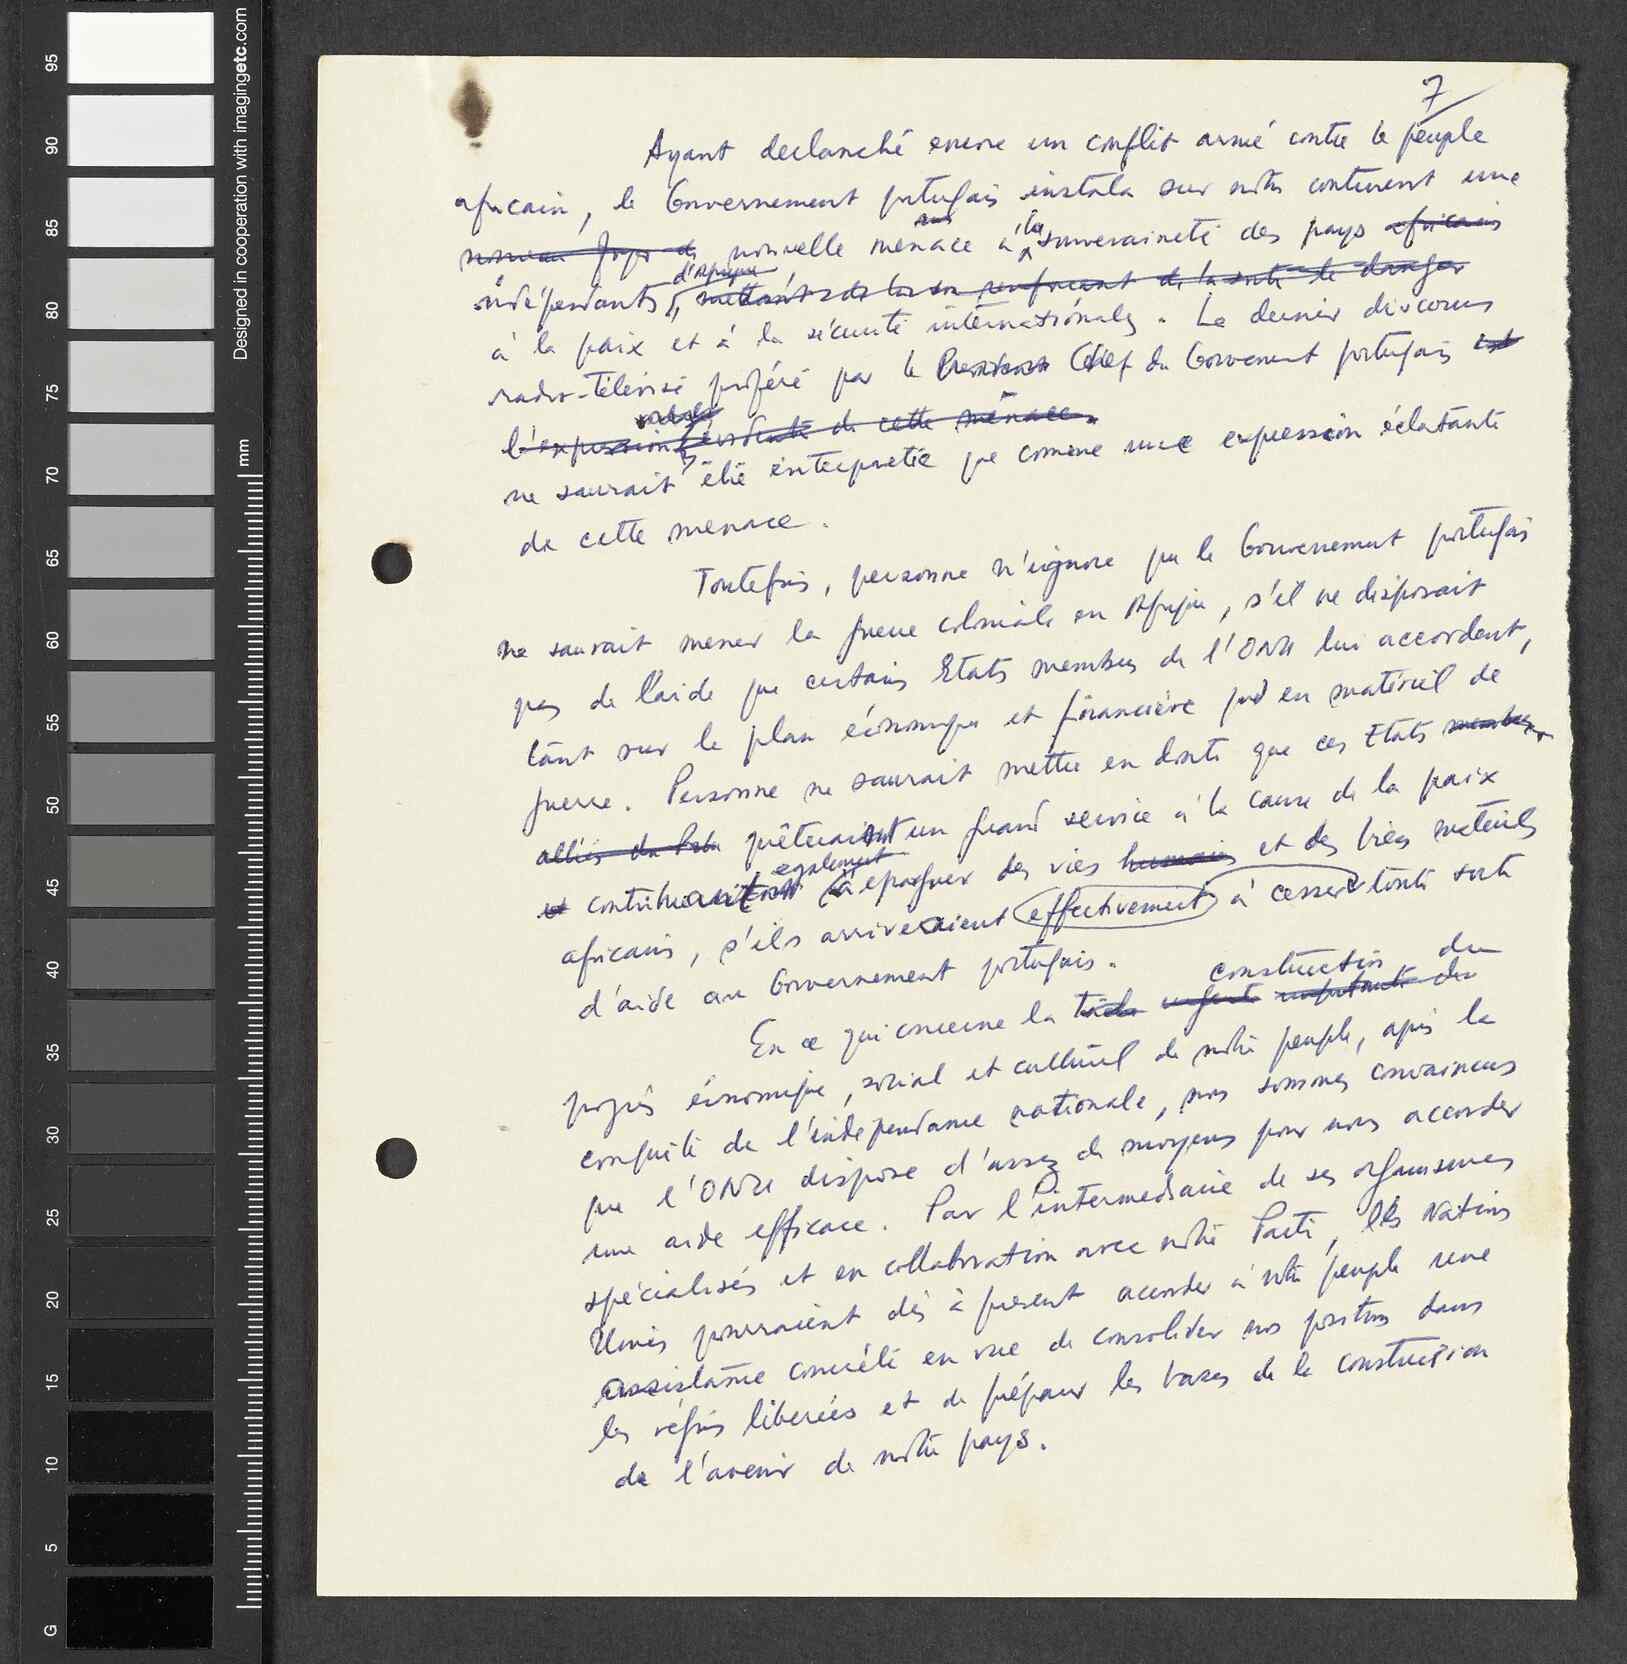 7
Ayant declanché encore un conflit armé contre le peuple
africain, le Gouvernement portugais instala sur notre continent une
nouvelle menace à la souveraineté des pays africains
indépendants d'Afrique,
à la paix et à la sécurité internationales. Le dernier discours
radio-télévisé proféré par le Chef du Gouvernement portugais est
l'expression évidente de cette menace.
ne saurait être interpretée que comme une expression éclatante
de cette menace.
Toutefois, personne n'ignore que le Gouvernement portugais
ne saurait mener la guerre coloniale en Afrique, s'il ne disposait
pas de l'aide que certains Etats membres de l'ONU lui accordent,
tant sur le plan économique et financière que en matériel de
guerre. Personne ne saurait mettre en doute que ces Etats membres
alliés du Port. prêteraient un grand service à la cause de la paix
et contribueraient également à epargner des vies humaines et des biens materiels
africains, s'ils arriveraient effectivement à cesser toute sorte
d'aide au Gouvernement portugais.
En ce qui concerne la tâche urgente importante du construction du
progrès économique, social et culturel de notre peuple, après la
conquête de l'indépendance nationale, nous sommes convaincus
que l'ONU dispose d'assez de moyens pour nous accorder
une aide efficace. Par l'intermediaire de ses organismes
spécialisés et en collaboration avec notre Parti, les Nations
Unies pourraient dès à present accorder à notre peuple une
assistance concrète en vue de consolider nos positions dans
les régions liberées et de préparer les bases de la construction
de l'avenir de notre pays.
Designed in cooperation with imagingetc.com
mm
95
90
85
80
75
70
65
60
55
50
45
40
35
30
25
20
15
10
5
G